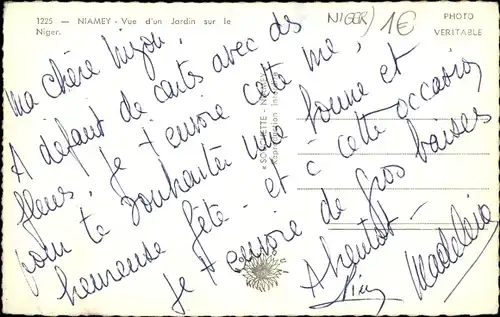 1225 — NIAMEY - Vue d'un Jardin sur le
Niger.
NIGER) 1€
PHOTO
VERITABLE
« SO ETTE » NIAMEY
Reproduction interdite
Ma chère
A défaut de cartes avec des
fleurs, je t'envoie cette vue,
pour te souhaiter une bonne et
heureuse fête - et à cette occasion
je t'envoie de gros baisers
A bientôt -
Madeleine